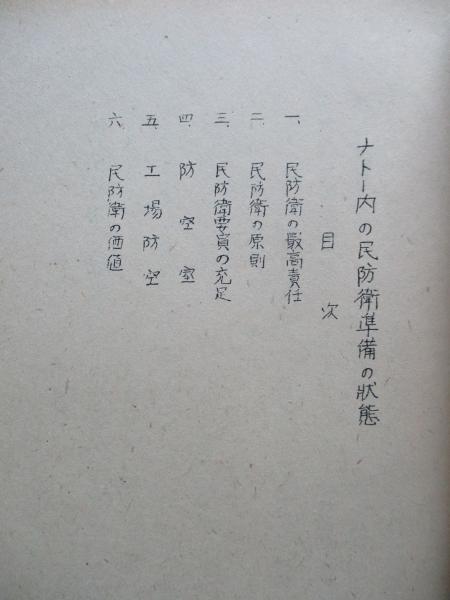 ナトー内の民防衛準備の狀態
目次
一、民防衛の最高責任
二、民防衛の原則
三、民防衛要員の充足
四、防空室
五、工場防空
六、民防衛の価値